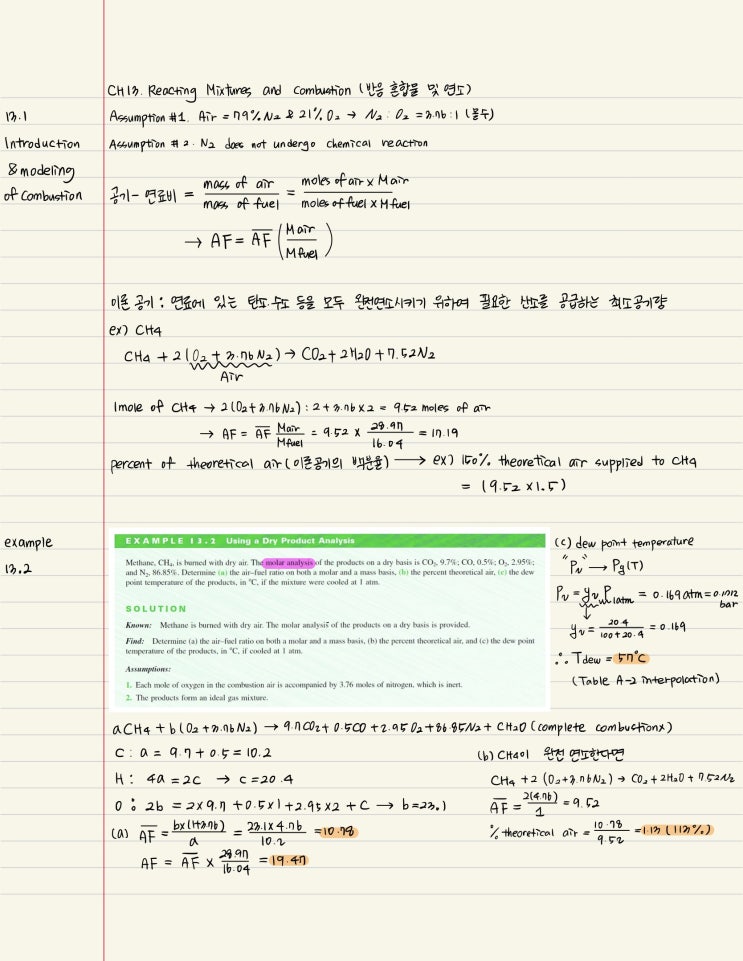 CH13. Reacting Mixtures and Combustion (반응 혼합물 및 연소)
13.1
Introduction
& modeling
of Combustion
Assumption #1. Air = 79% N2 & 21% O2 → N2 : O2 = 3.76 : 1 (몰수)
Assumption #2. N2 does not undergo chemical reaction
공기-연료비 = mass of air / mass of fuel = moles of air x Mair / moles of fuel x Mfuel
→ AF = \overline{AF} (Mair / Mfuel)
이론 공기 : 연료에 있는 탄소.수소 등을 모두 완전연소시키기 위하여 필요한 산소를 공급하는 최소공기량
ex) CH4
CH4 + 2(O2 + 3.76 N2) → CO2 + 2H2O + 7.52N2
Air
1mole of CH4 → 2(O2+3.76N2) : 2+3.76×2 = 9.52 moles of air
→ AF = \overline{AF} Mair / Mfuel = 9.52 × 28.97 / 16.04 = 17.19
percent of theoretical air (이론공기의 백분율) → ex) 150% theoretical air supplied to CH4
= (9.52 ×1.5)
example
13.2
EXAMPLE 13.2 Using a Dry Product Analysis
Methane, CH4, is burned with dry air. The molar analysis of the products on a dry basis is CO2, 9.7%; CO, 0.5%; O2, 2.95%;
and N2, 86.85%. Determine (a) the air–fuel ratio on both a molar and a mass basis, (b) the percent theoretical air, (c) the dew
point temperature of the products, in °C, if the mixture were cooled at 1 atm.
SOLUTION
Known: Methane is burned with dry air. The molar analysis of the products on a dry basis is provided.
Find: Determine (a) the air–fuel ratio on both a molar and a mass basis, (b) the percent theoretical air, and (c) the dew point
temperature of the products, in °C, if cooled at 1 atm.
Assumptions:
1. Each mole of oxygen in the combustion air is accompanied by 3.76 moles of nitrogen, which is inert.
2. The products form an ideal gas mixture.
(c) dew point temperature
"Pv" → Pg(T)
Pv = yv P1atm = 0.169 atm = 0.1712
bar
yv = 20.4 / 100+20.4 = 0.169
∴ Tdew = 57°C
(Table A-2 interpolation)
aCH4 + b(O2+3.76N2) → 9.7CO2+0.5CO+2.95O2+86.85N2+CH2O (complete combustionx)
C : a = 9.7 + 0.5 = 10.2
H : 4a = 2c → c = 20.4
O : 2b = 2×9.7 + 0.5×1 + 2.95×2 + c → b=23.1
(a) \overline{AF} = b×(1+3.76) / a = 23.1×4.76 / 10.2 = 10.78
AF = \overline{AF} × 28.97 / 16.04 = 19.47
(b) CH4이 완전 연소한다면
CH4 + 2 (O2+3.76N2) → CO2+2H2O+7.52N2
\overline{AF} = 2(4.76) / 1 = 9.52
% theoretical air = 10.78 / 9.52 = 1.13 (113%)